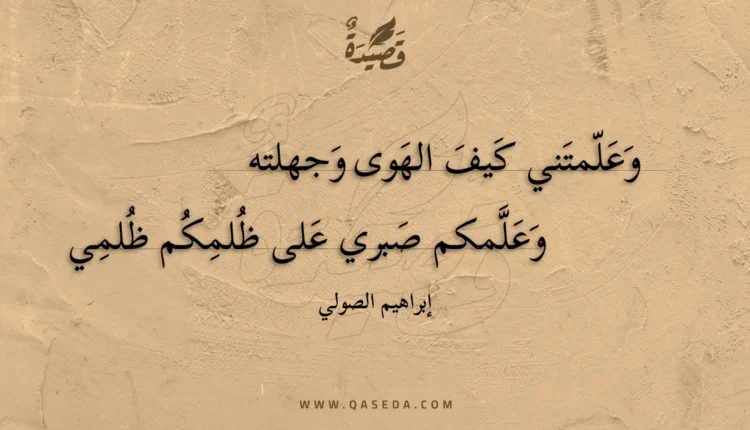 قَصِيْدَةٌ
وَعَلّمتَني كَيفَ الهَوى وَجهلته
وَعَلَّمكم صَبري عَلى ظُلمِكُم ظُلمِي
إبراهيم الصولي
WWW.QASEDA.COM